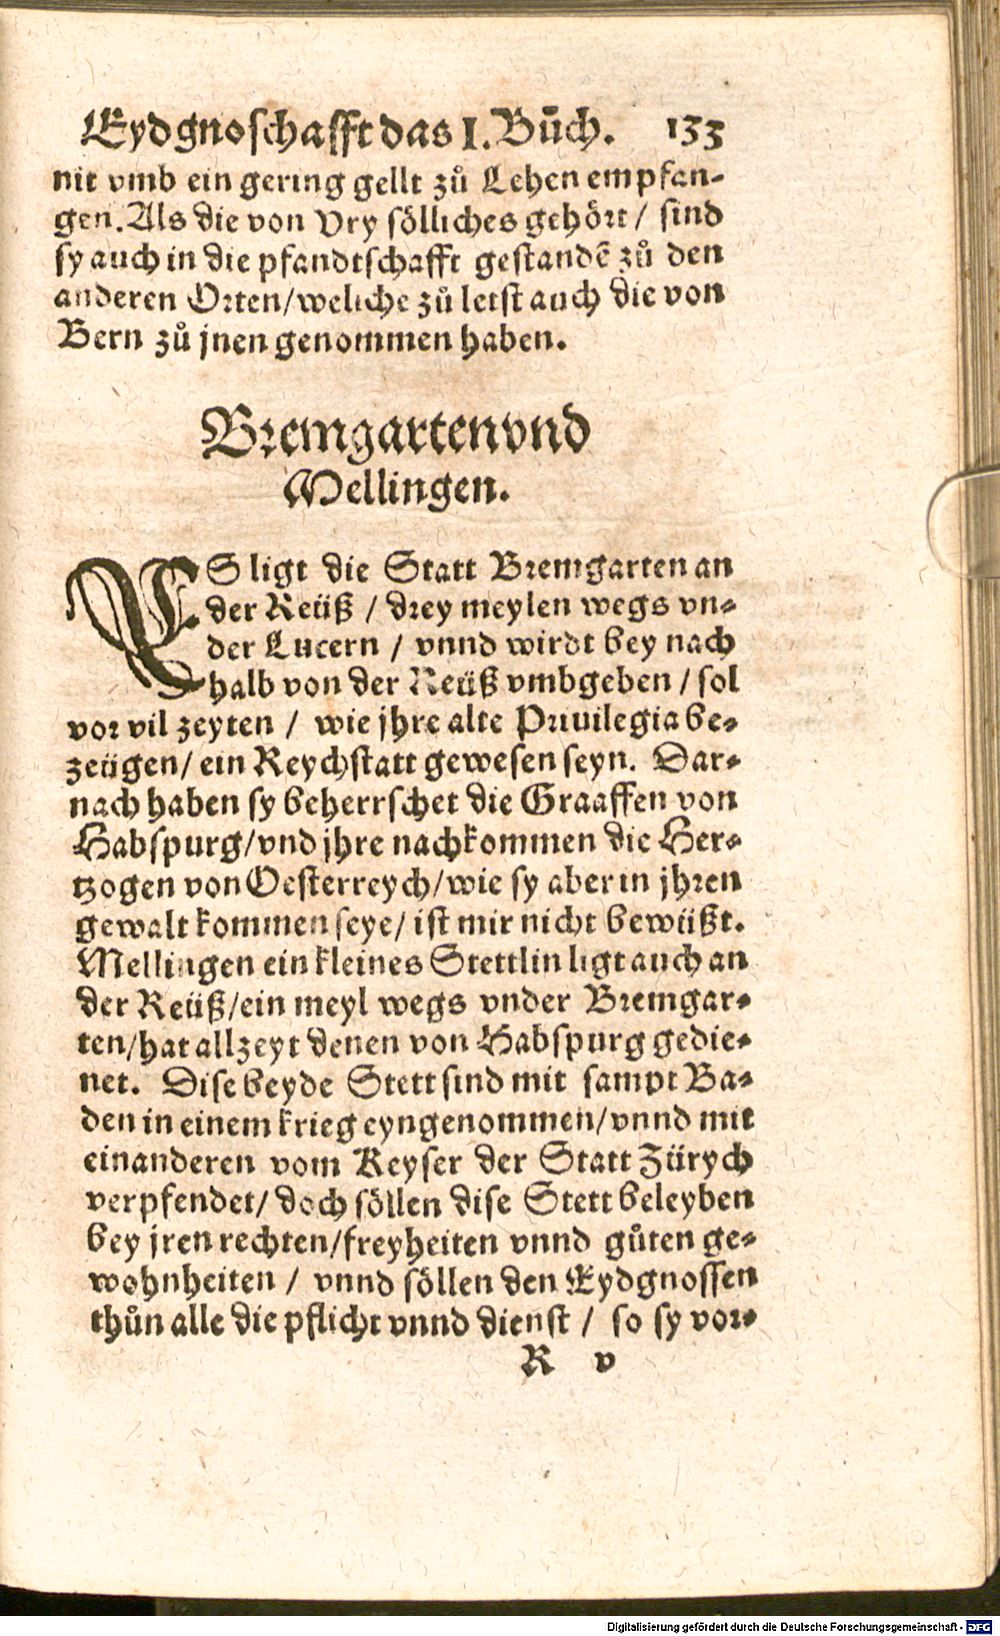 Eydgnoschafft das I. Bůch. 133
nit vmb ein gering gellt zů Lehen empfan-
gen. Als die von Vry sölliches gehört / sind
sy auch in die pfandtschafft gestandẽ zů den
anderen Orten/weliche zů letst auch die von
Bern zů jnen genommen haben.
Bremgarten vnd
Mellingen.
ES ligt die Statt Bremgarten an
der Reüß / drey meylen wegs vn-
der Lucern / vnnd wirdt bey nach
halb von der Reüß vmbgeben / sol
vor vil zeyten / wie jhre alte Priuilegia be-
zeügen/ ein Reychstatt gewesen seyn. Dar-
nach haben sy beherrschet die Graaffen von
Habspurg/vnd jhre nachkommen die Her-
tzogen von Oesterreych/wie sy aber in jhren
gewalt kommen seye/ ist mir nicht bewüßt.
Mellingen ein kleines Stettlin ligt auch an
der Reüß/ein meyl wegs vnder Bremgar-
ten/hat allzeyt denen von Habspurg gedie-
net. Dise beyde Stett sind mit sampt Ba-
den in einem krieg eyngenommen/vnnd mit
einanderen vom Keyser der Statt Zürych
verpfendet/ doch söllen dise Stett beleyben
bey jren rechten/freyheiten vnnd gůten ge-
wohnheiten / vnnd söllen den Eydgnossen
thůn alle die pflicht vnnd dienst / so sy vor-
R v
Digitalisierung gefördert durch die Deutsche Forschungsgemeinschaft - DFG